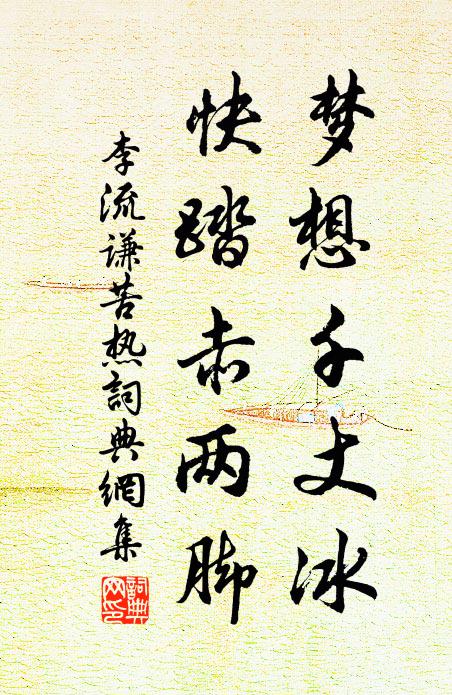 梦想千丈冰
快踏赤两脚
李流谦苦热詞典網集
詞典网印